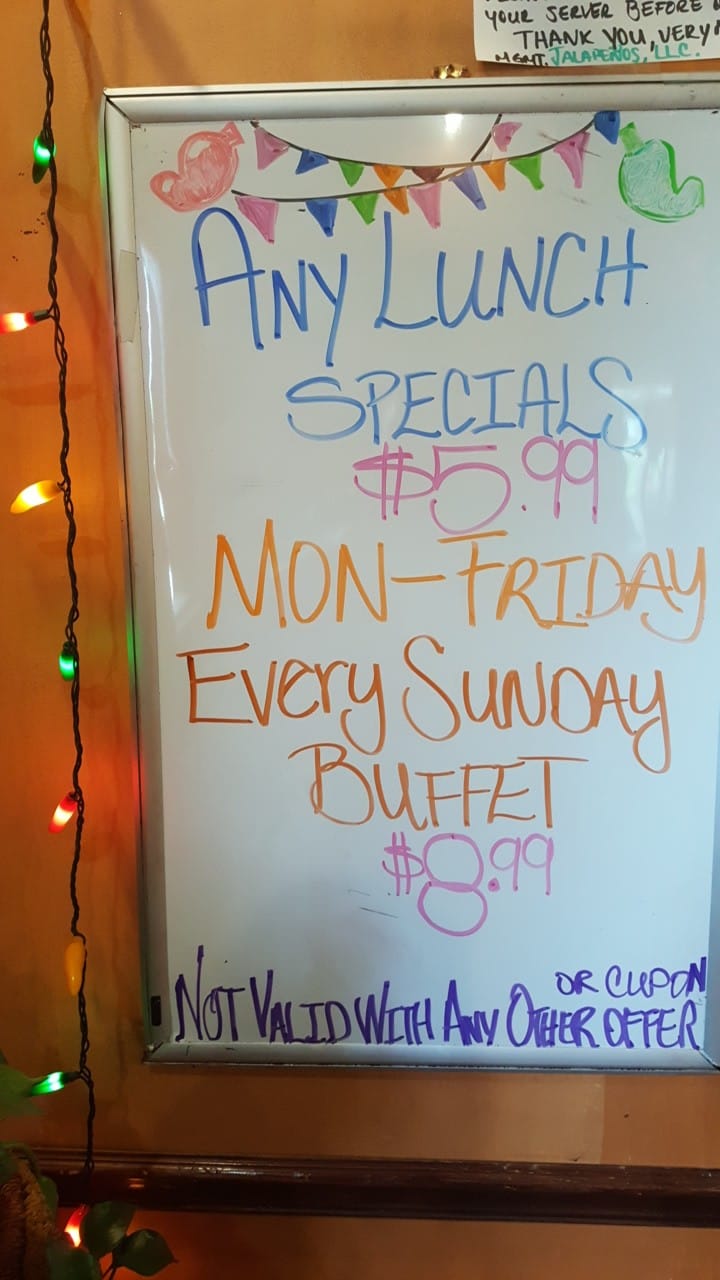 YOUR SERVER BEFORE
THANK YOU, VERY
MGMT. JALAPEÑOS, LLC.
ANY LUNCH
SPECIALS
$5.99
MON-FRIDAY
EVERY SUNDAY
BUFFET
$8.99
OR CUPON
NOT VALID WITH ANY OTHER OFFER